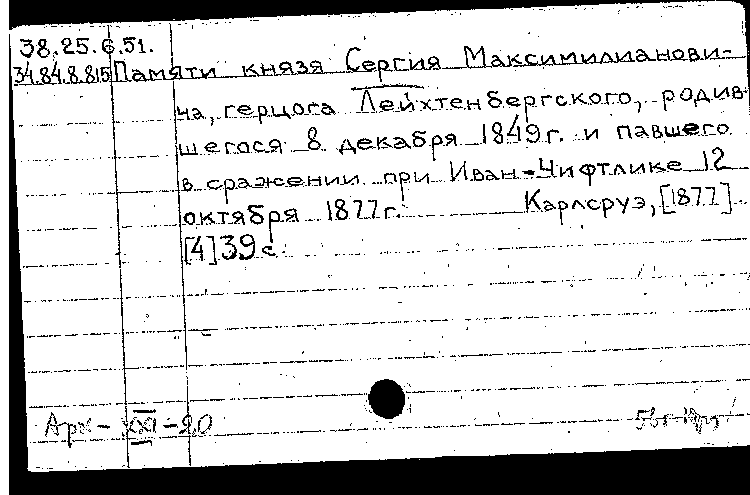 38.25.6.51.
34.84.8.815 Памяти князя Сергия Максимилианови-
ча, герцога Лейхтенбергского, родив-
шегося 8 декабря 1849г. и павшего
в сражении при Иван-Чифтлике 12
октября 1877г. Карлсруэ, [1877].
[4]39с.
Арх-XXI-20